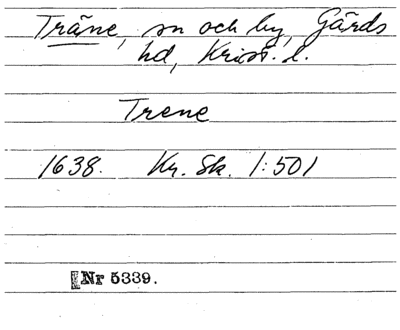 Träne, sn och by, Gärds
hd, Krist. l.
Trene
1638. Kr. Sk. 1:501
Nr 5339.